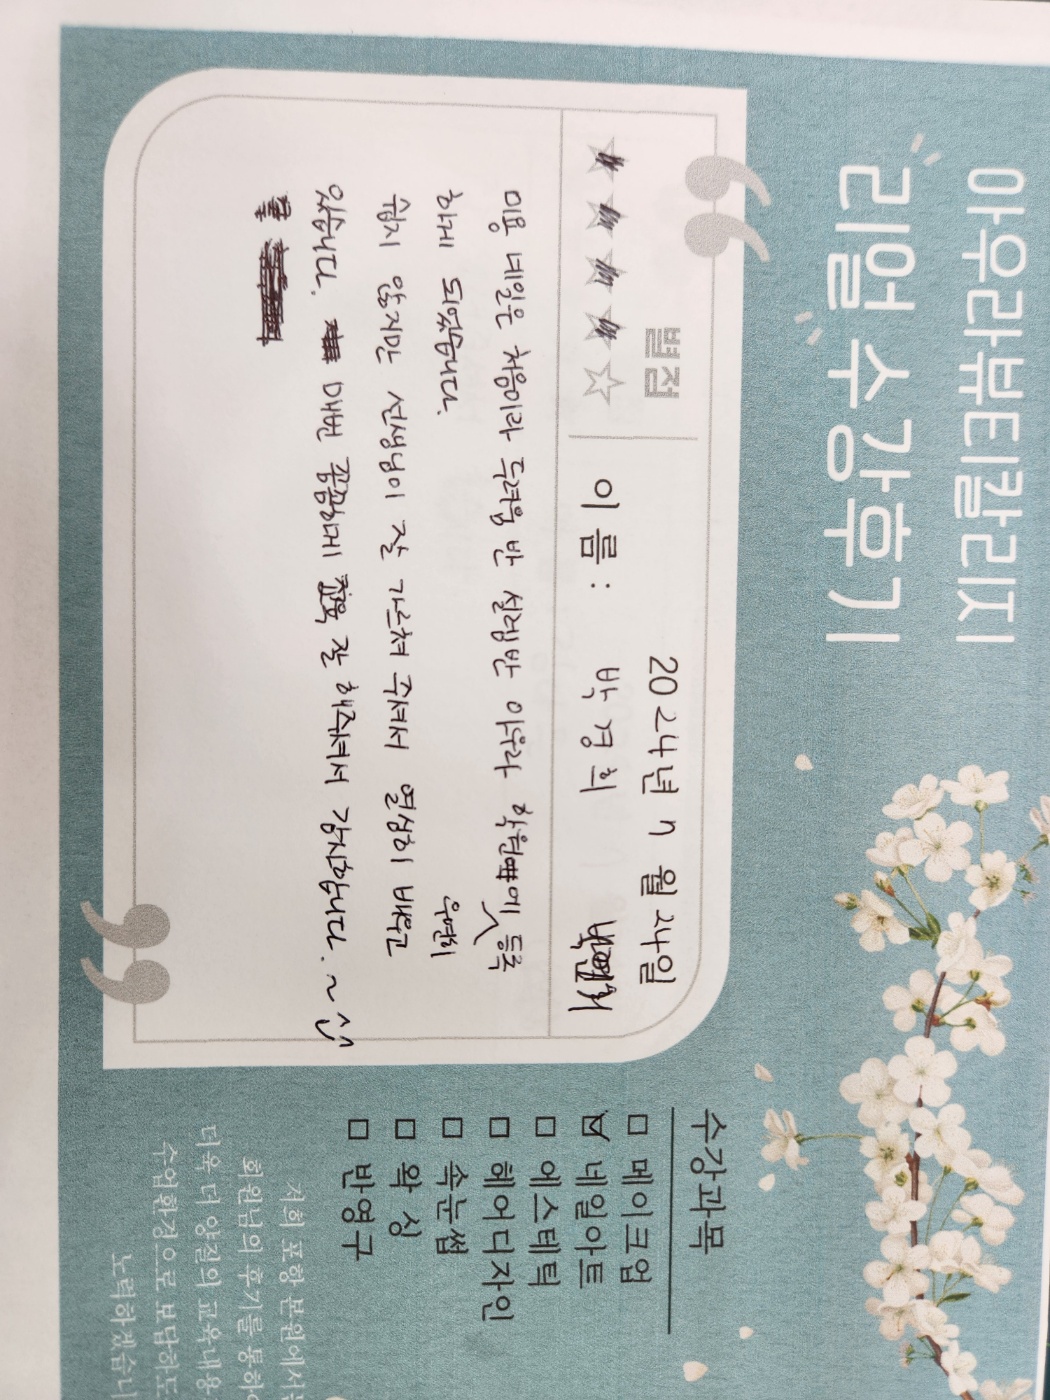 아우라뷰티칼리지
리얼 수강후기
별점
2024년 7월 24일
이름: 박경희
미용 네일은 처음이라 두려움 반 설렘반 이였다 학원에 등록
우연히
하게 되었습니다.
쉽지 않지만 선생님이 잘 가르쳐 주셔서 열심히 배우고
있습니다. 매번 꼼꼼하게 잘 해주셔서 감사합니다.~
수강과목
메이크업
네일아트
에스테틱
헤어디자인
속눈썹
왁싱
반영구
저희 포항 본원에서는
회원님의 후기를 통하여
더욱 더 양질의 교육내용
수업환경으로 보답하도
노력하겠습니